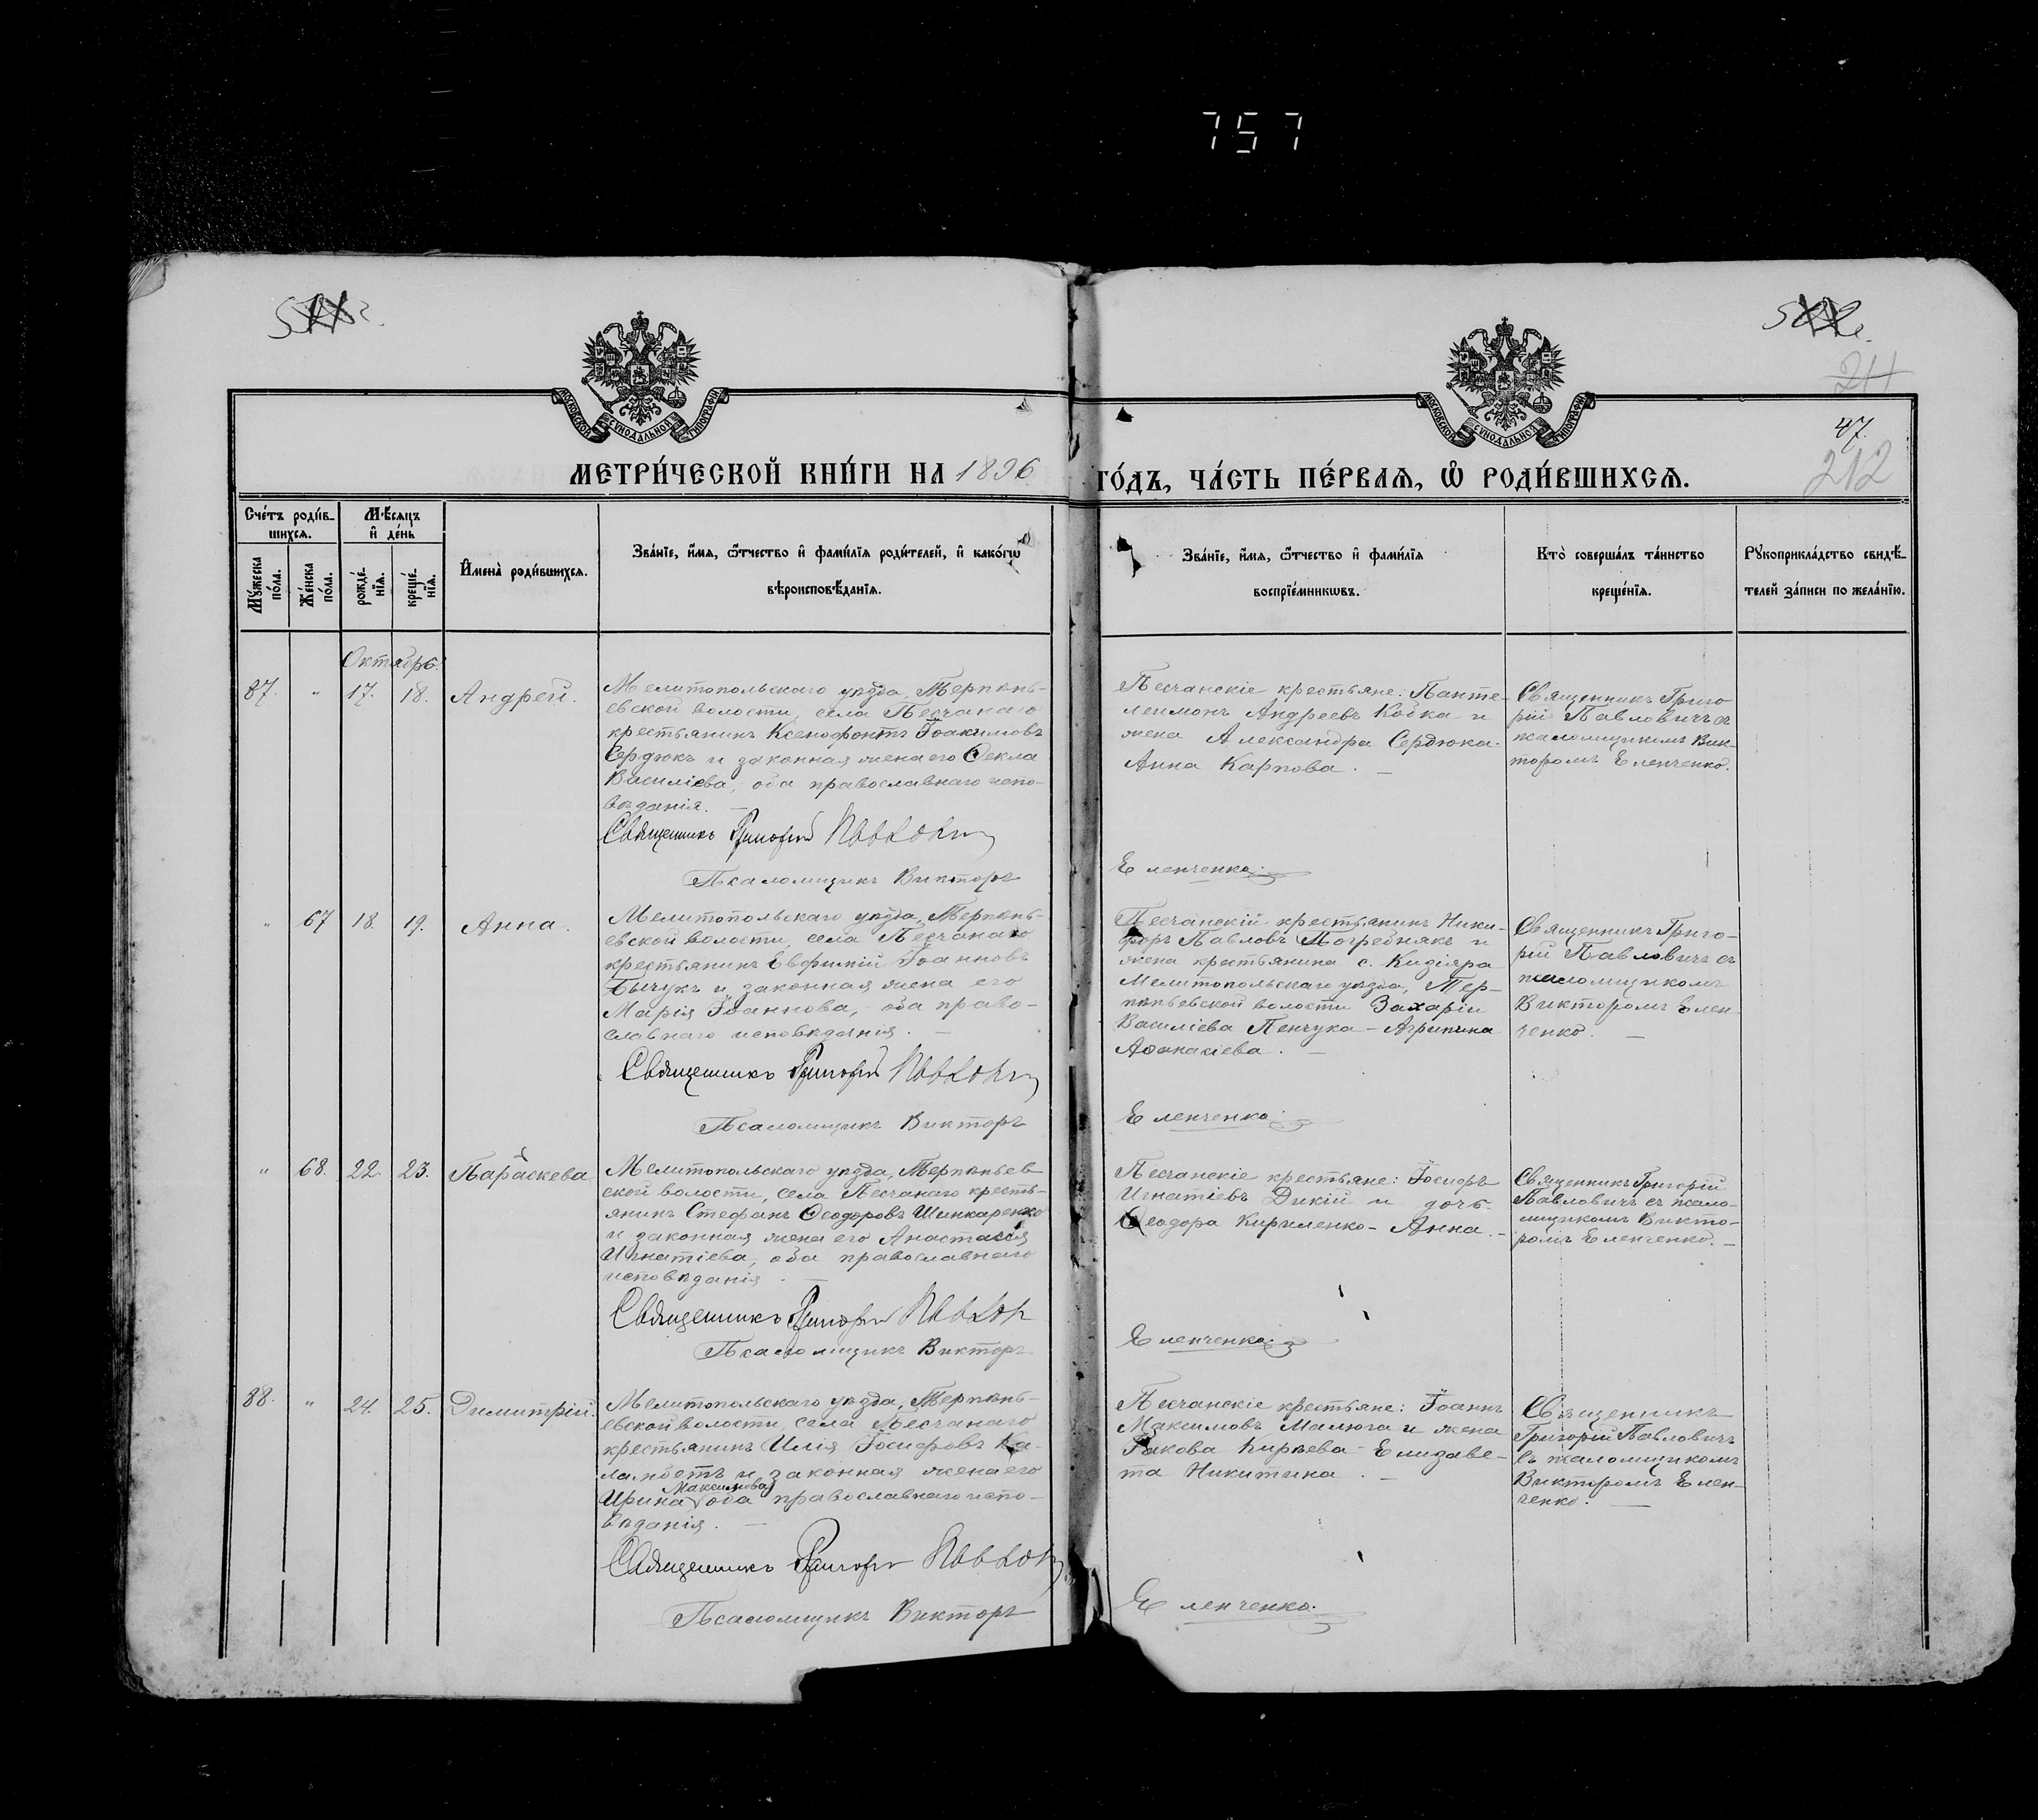 757
МОСКОВСКОЙ СѴНОДАЛЬНОЙ ТИПОГРАФІИ
МОСКОВСКОЙ СѴНОДАЛЬНОЙ ТИПОГРАФІИ
211
47.
212
МЕТРИ́ЧЕСКОЙ КНИ́ГИ НА 1896 ГО́ДЪ, ЧА́СТЬ ПЕ́РВАЯ, Ѽ РОДИ́ВШИХСЯ.
Сче́тъ роди́в-
шихся.
Мꙋ́жеска по́ла.
Же́нска по́ла.
Мѣ́сяцъ
и҆ де́нь
рожде́-
нїя.
креще́-
нїя.
И҆мена̀ роди́вшихся.
Зва́нїе, и҆́мя, ѻ҆́тчество и҆ фами́лїя роди́телей, и҆ како́гѡ
вѣроисповѣ́данїя.
Зва́нїе, и҆́мя, ѻ҆́тчество и҆ фами́лїя
воспрїе́мникѡвъ.
Кто̀ соверша́лъ та́инство
креще́нїя.
Рꙋкоприкла́дство свидѣ́-
телей за́писи по жела́нїю.
Октября.
87. " 17. 18. Андрей.
Мелитопольскаго уѣзда, Терпѣнь-
евской волости, села Песчанаго
крестьянинъ Ксенофонтъ Іоакимовъ
Сердюкъ и законная жена его Ѳекла
Василіева, оба православнаго испо-
вѣданія. —
Священникъ Григорій Павлович
Псаломщикъ Викторъ
Песчанскіе крестьяне: Панте-
леимонъ Андреевъ Кобка и
жена Александра Сердюка.
Анна Карпова. —
Еленченко.
Священникъ Григо
рій Павловичъ съ
псаломщикомъ Вик-
торомъ Еленченко.
" 67 18. 19. Анна.
Мелитопольскаго уѣзда, Терпѣнь-
евской волости, села Песчанаго
крестьянинъ Евфимій Іоанновъ
Бычукъ и законная жена его
Марія Іоаннова, - оба право-
славнаго исповѣданія. —
Священникъ Григорій Павлович
Псаломщикъ Викторъ
Песчанскій крестьянинъ Ники-
форъ Павловъ Погребнякъ и
жена крестьянина с. Кизіяра
Мелитопольскаго уѣзда, Тер-
пѣньевской волости Захаріи
Василіева Пенчука - Агрипина
Аѳанасіева. —
Еленченко.
Священникъ Григо-
рій Павловичъ съ
псаломщикомъ
Викторомъ Елен
ченко. —
" 68. 22. 23. Параскева
Мелитопольскаго уѣзда, Терпѣньев
ской волости, села Песчанаго кресть-
янинъ Стефанъ Ѳеодоровъ Шинкаренко
и законная жена его Анастасія
Игнатіева, оба православнаго
исповѣданія. —
Священникъ Григорій Павлович
Псаломщикъ Викторъ
Песчанскіе крестьяне: Іосифъ
Игнатіевъ Дикій и дочь
Ѳеодора Кириленко - Анна. -
Еленченко
Священникъ Григорій
Павловичъ съ псало-
мщикомъ Викто-
ромъ Еленченко. —
88. " 24. 25. Димитрій.
Мелитопольскаго уѣзда, Терпѣнь-
евской волости, села Песчанаго
крестьянинъ Илія Іосифовъ
и законная жена его
Максимова
Ирина оба православнаго испо-
вѣданія. —
Священникъ Григорій Павлович
Псаломщикъ Викторъ
Песчанскіе крестьяне: Іоаннъ
Максимовъ Малюга и жена
Іакова Кирѣева - Елизаве-
та Никитина. —
Еленченко.
Священникъ
Григорій Павловичъ
съ псаломщикомъ
Викторомъ Елен-
ченко. —